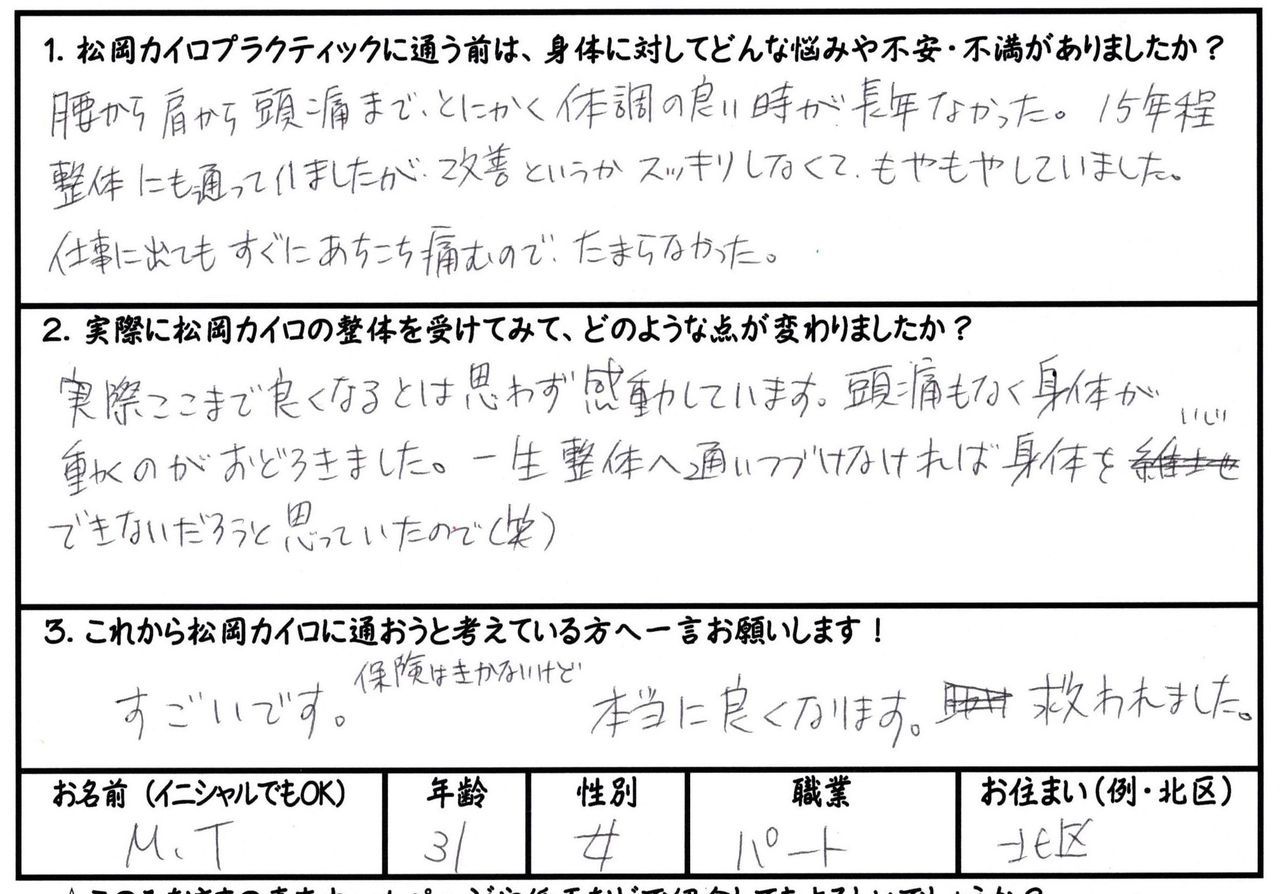 1. 松岡カイロプラクティックに通う前は、身体に対してどんな悩みや不安・不満がありましたか？
腰から肩から頭痛まで、とにかく体調の良い時が長年なかった。15年程
整体にも通っていましたが、改善というかスッキリしなくて、もやもやしていました。
仕事に出てもすぐにあちこち痛むので、たまらなかった。
2. 実際に松岡カイロの整体を受けてみて、どのような点が変わりましたか？
実際ここまで良くなるとは思わず感動しています。頭痛もなく身体が
動くのがおどろきました。一生整体へ通いつづけなければ身体をいじ
できないだろうと思っていたので(笑)
3. これから松岡カイロに通おうと考えている方へ一言お願いします！
すごいです。保険はきかないけど本当に良くなります。救われました。
お名前（イニシャルでもOK） 年齢 性別 職業 お住まい（例・北区）
M.T 31 女 パート 北区